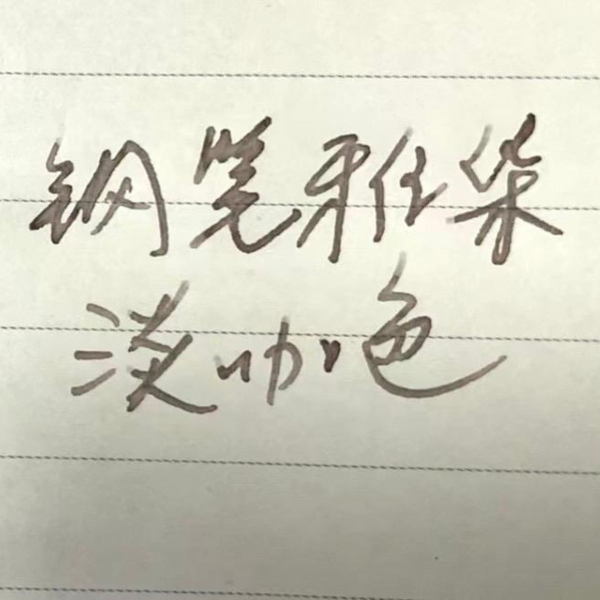 钢笔雅染
淡咖色